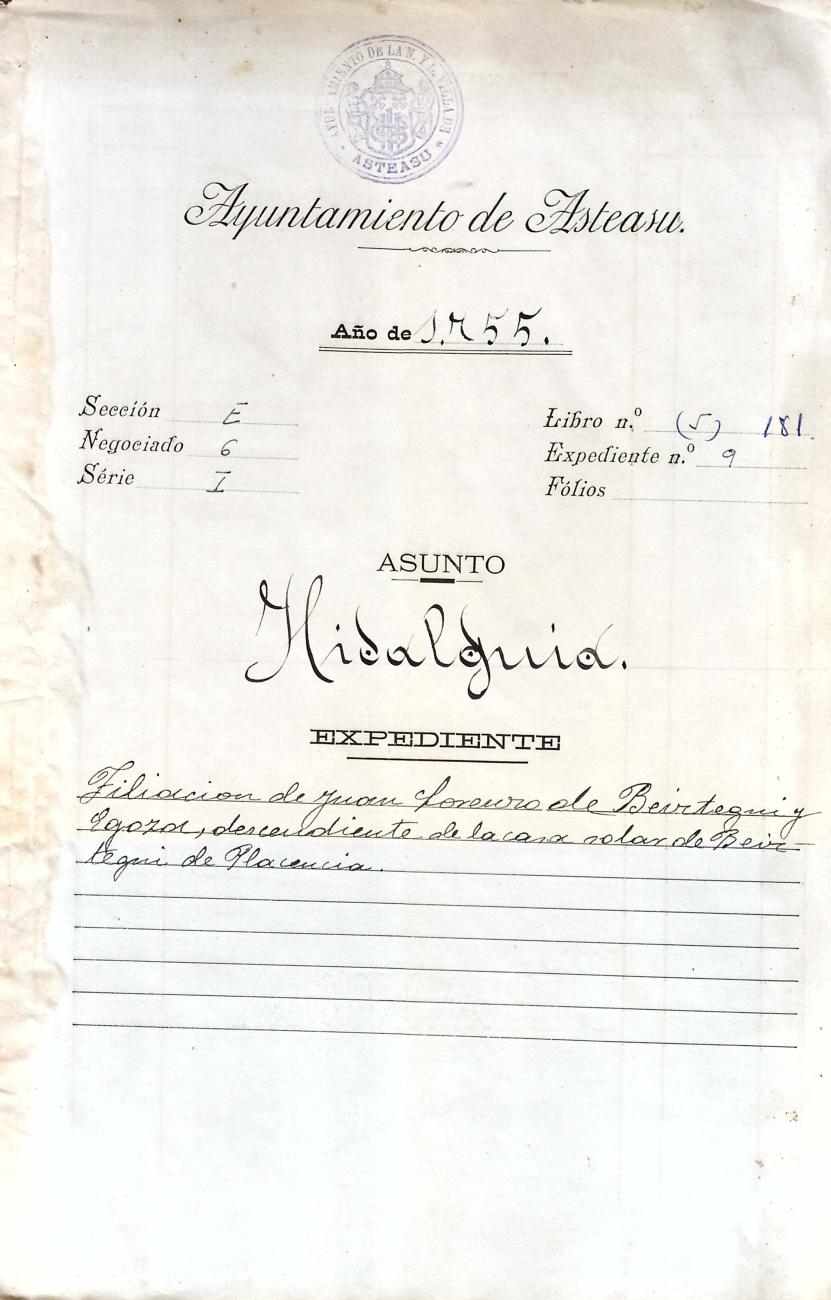 AYUNTAMIENTO DE LA N. Y L. VILLA DE
* ASTEASU *
Ayuntamiento de Asteasu.
Año de 1.755.
Sección E
Negociado 6
Série I
Libro n.º (5) 181
Expediente n.º 9
Fólios
ASUNTO
Hidalguia.
EXPEDIENTE
Filiacion de Juan Lorenzo de Beirtegui y
Egoza, descendiente de la casa solar de Beir-
tegui de Placencia.